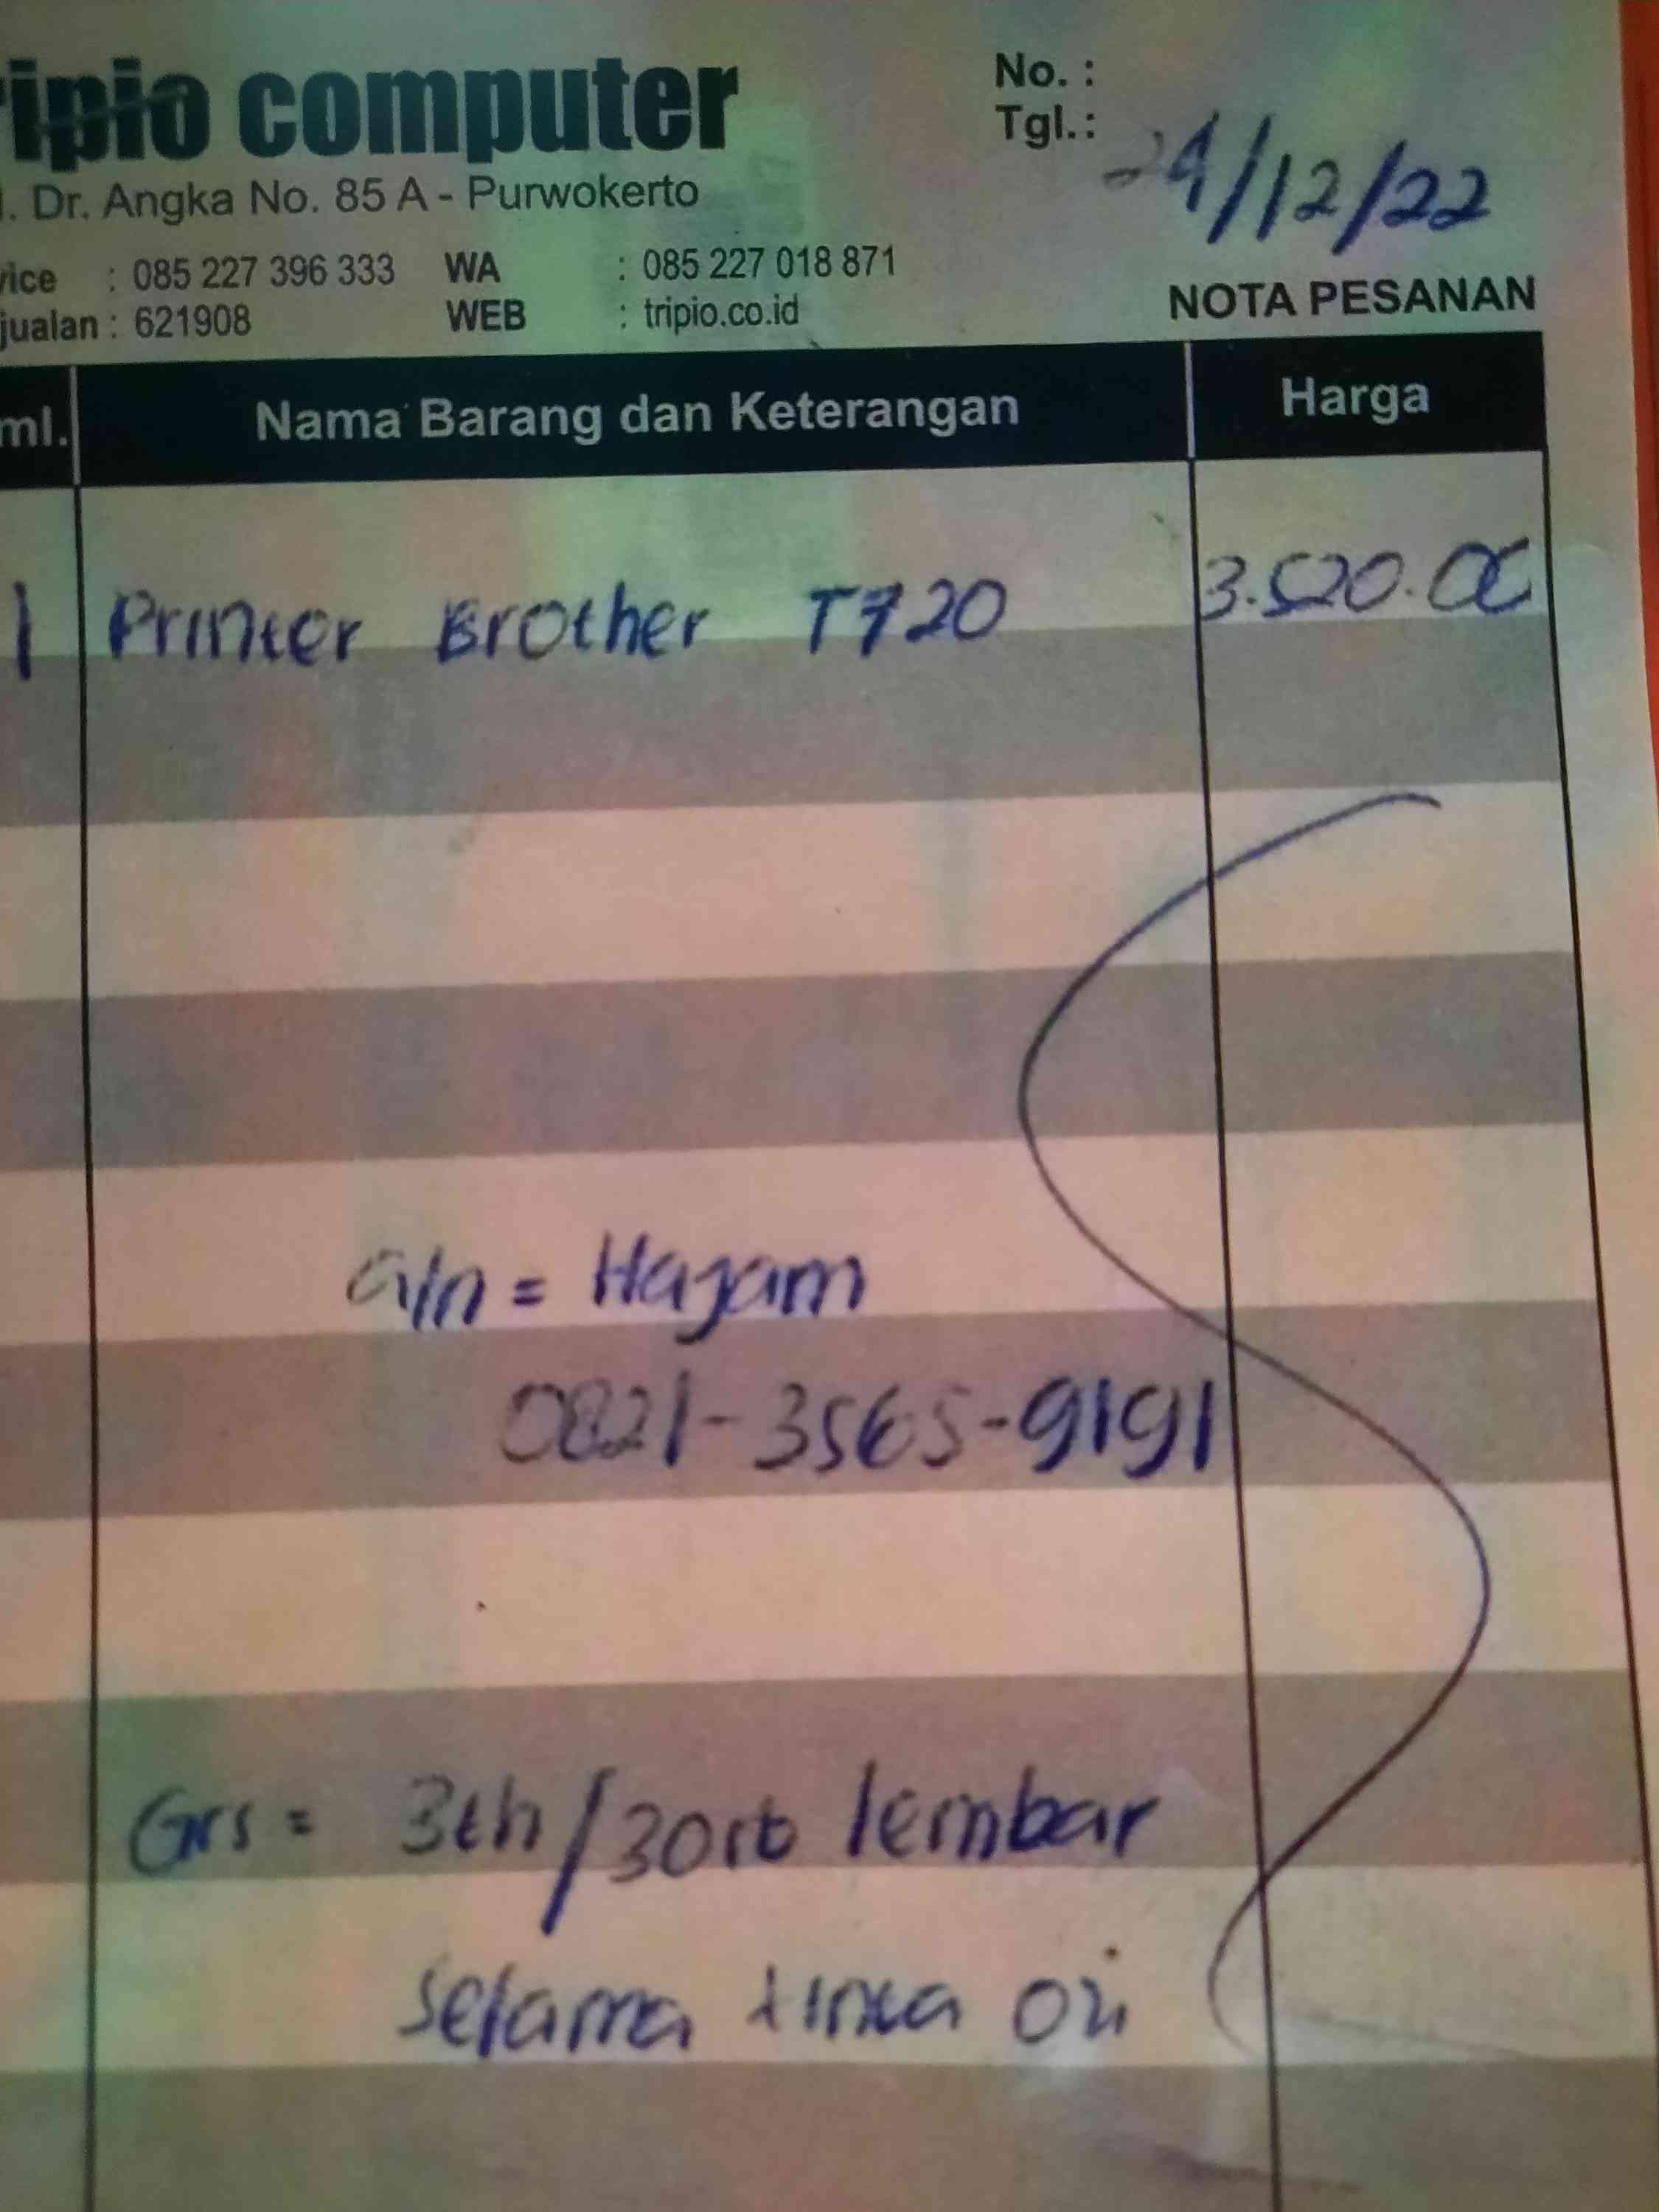 ripio computer
No. :
Tgl. : 24/12/22
l. Dr. Angka No. 85 A - Purwokerto
vice : 085 227 396 333 WA : 085 227 018 871
jualan : 621908 WEB : tripio.co.id
NOTA PESANAN
ml. Nama Barang dan Keterangan Harga
1 Printer Brother T720 3.520.00
a/n = Hajam
0821-3565-9191
Grs = 3th/30rb lembar
selama tinta ori